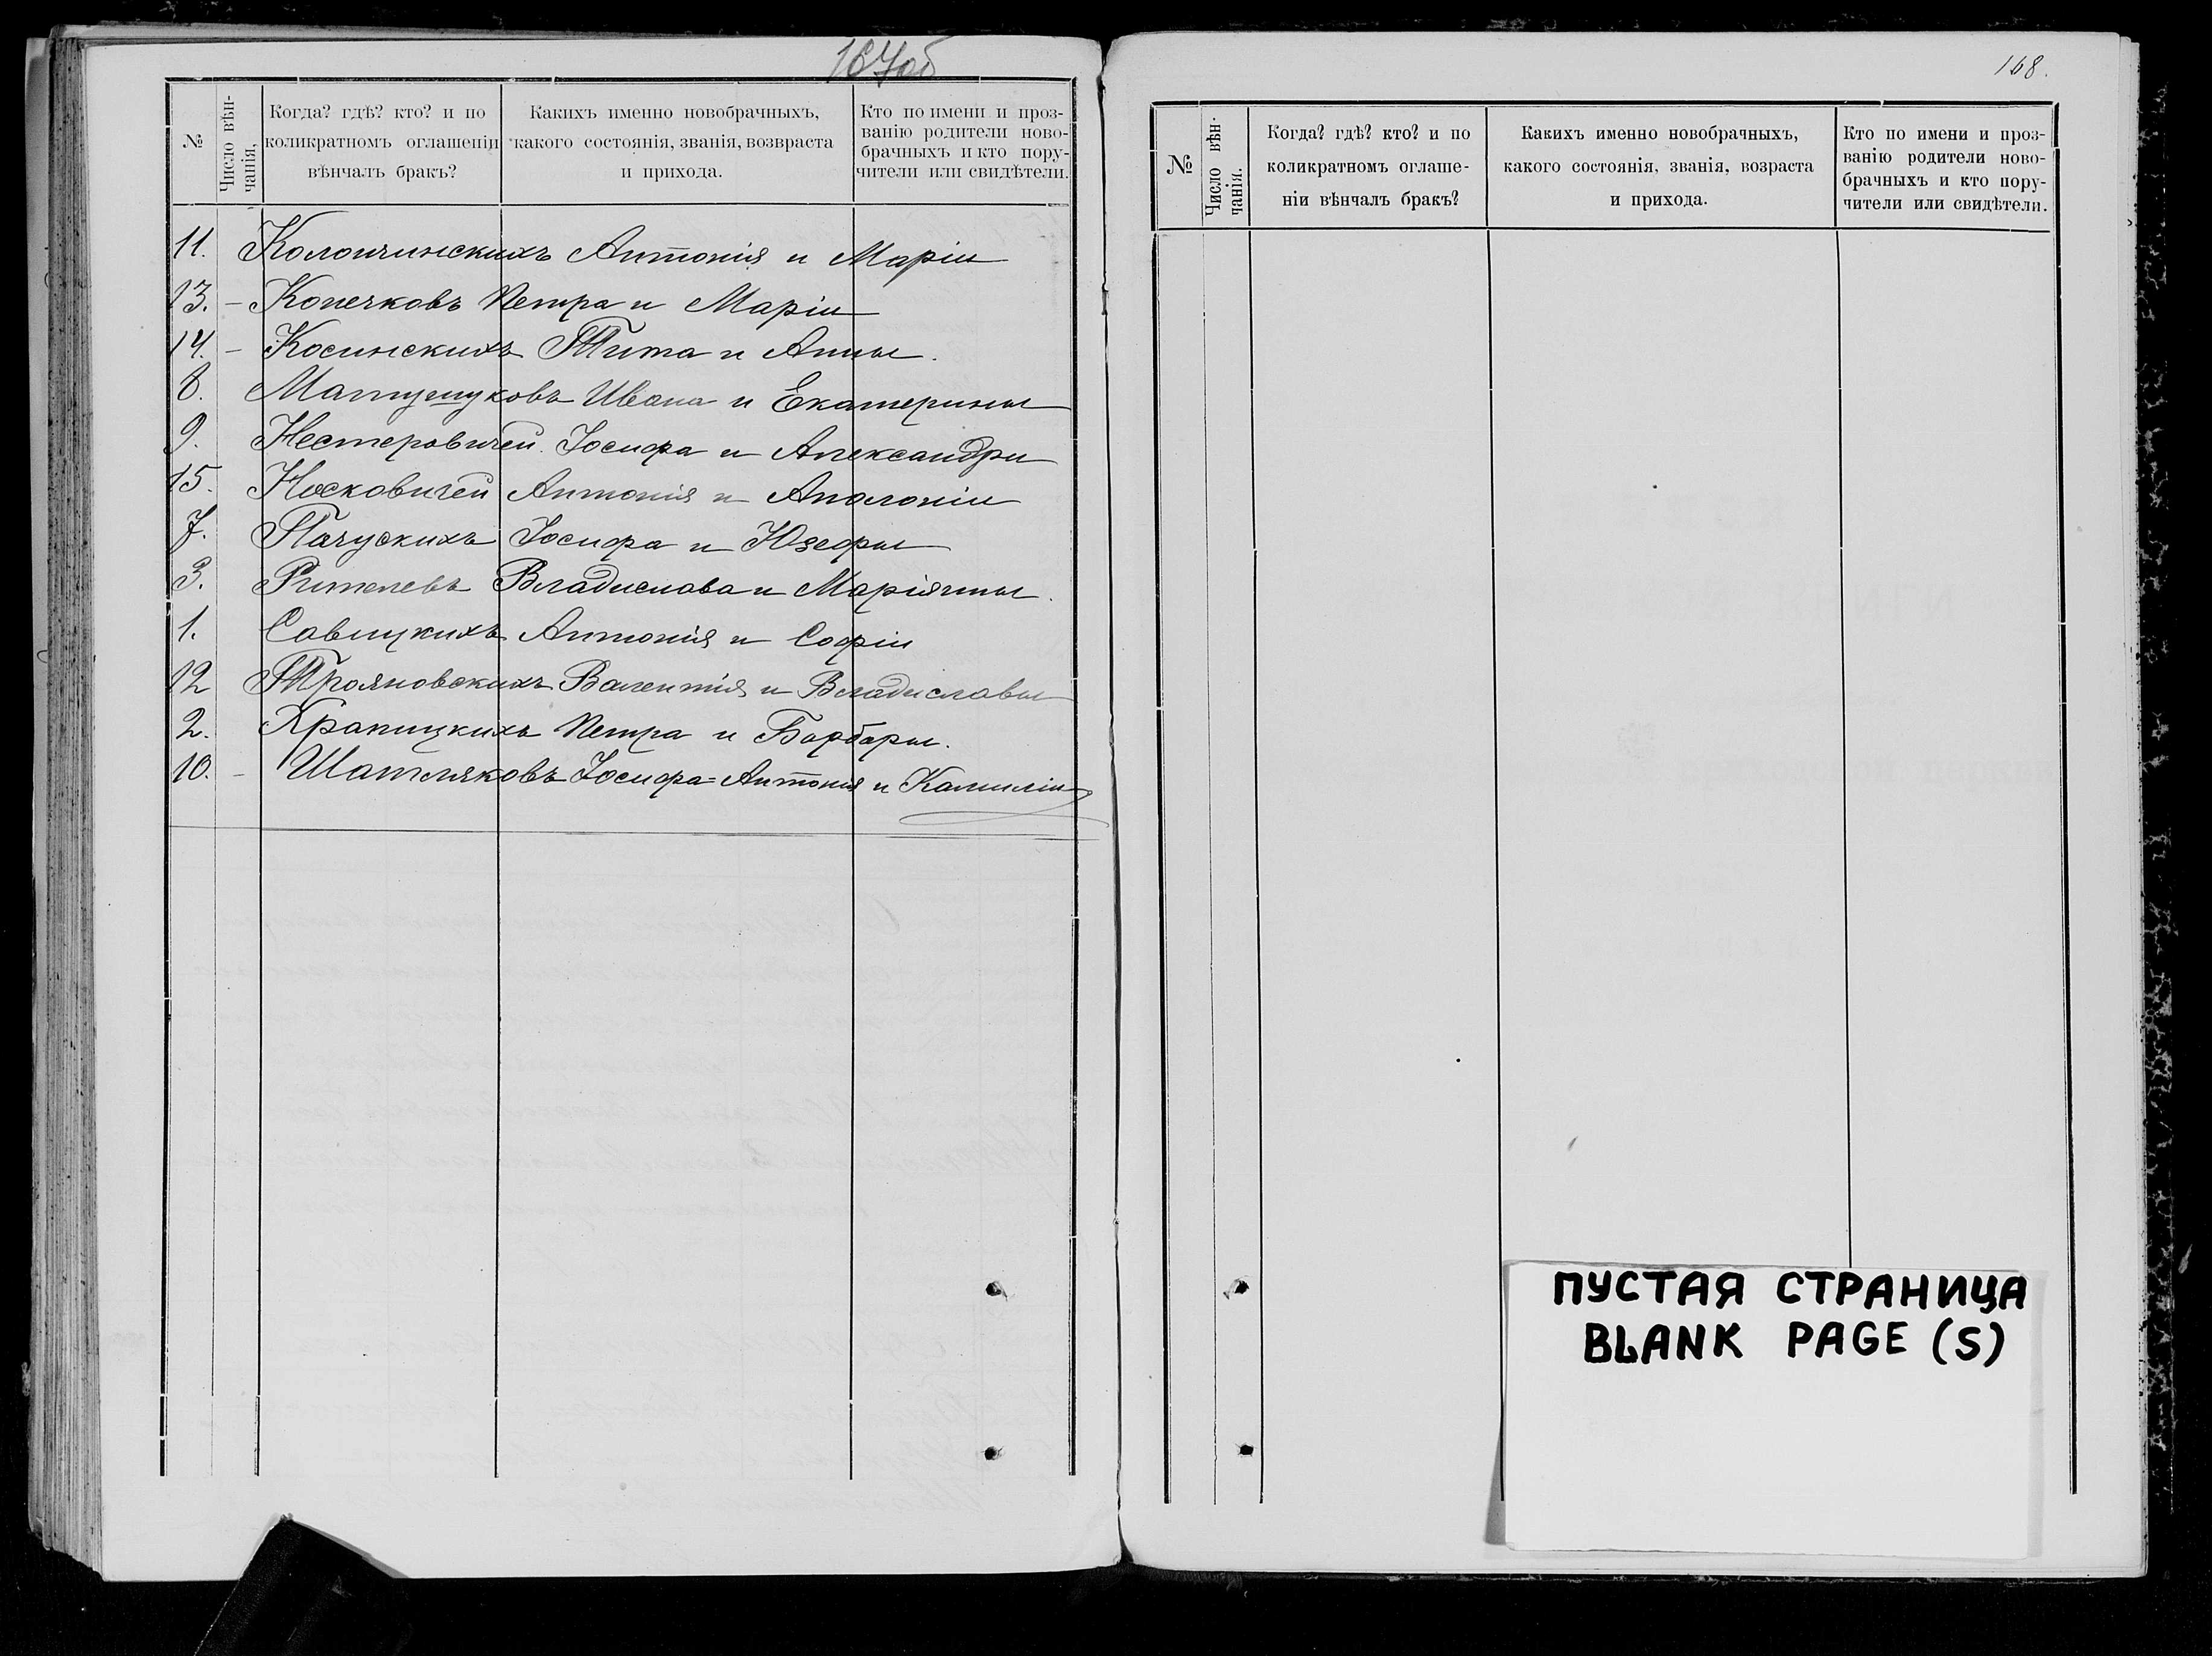 167об
№
Число вѣн-
чанія,
Когда? гдѣ? кто? и по
коликратномъ оглашеніи
вѣнчалъ бракъ?
Какихъ именно новобрачныхъ,
какого состоянія, званія, возвраста
и прихода.
Кто по имени и проз-
ванію родители ново-
брачныхъ и кто пору-
чители или свидѣтели.
11. Колочинскихъ Антонія и Маріи
13. – Копечковъ Петра и Маріи
14. – Косинскихъ Тита и Анны.
8. Матущуковъ Ивана и Екатерины
9. Нестеровичей Іосифа и Александри
15. Носковичей Антонія и Аполоніи
7. Пачускихъ Іосифа и Юзефы
3. Рителевъ Владислава и Маріянны.
1. Савицкихъ Антонія и Софіи
12 Трояновскихъ Валентія и Владиславы
2. Крапицкихъ Петра и Барбары.
10. – Шатляковъ Іосифа=Антонія и Камиліи
168.
№
Число вѣн-
чанія.
Когда? гдѣ? кто? и по
коликратномъ оглаше-
ніи вѣнчалъ бракъ?
Какихъ именно новобрачныхъ,
какого состоянія, званія, возраста
и прихода.
Кто по имени и проз-
ванію родители ново-
брачныхъ и кто пору-
чители или свидѣтели.
ПУСТАЯ СТРАНИЦА
BLANK PAGE (S)